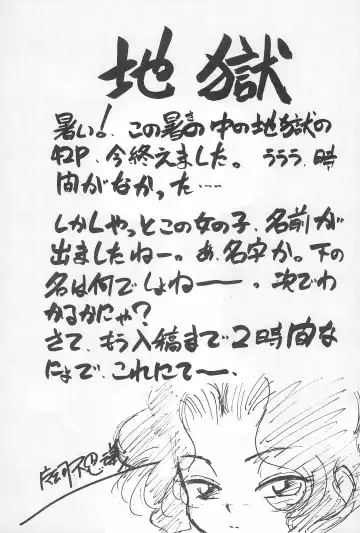 地獄
暑い!、この暑さの中の地獄の
42P、今終えました。ううう、時
間がなかった……
しかしやっとこの女の子、名前が
出ましたねー。あ、名字か。下の
名は何でしょねー。次でわ
かるかにゃ?
さて、もう入稿まで2時間な
にょで、これにて〜、